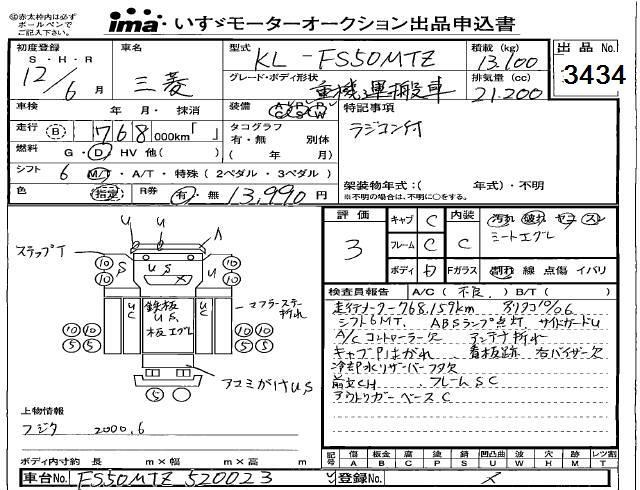 ㊟赤太枠内は必ず
ボールペンで
ご記入下さい。
ima いすゞモーターオークション出品申込書
初度登録 S・H・R 12/6 月
車名 三菱
型式 KL-FS50MTZ
積載 (kg) 13,100
出品 No. 3434
グレード・ボディ形状 重機運搬車
排気量 (cc) 21,200
車検 年 月・ 抹消
装備 A/C P/S P/W
特記事項
ラジコン付
走行 B 768 000km「 」
タコグラフ 有・無 別体
( 年 月)
燃料 G・D・HV 他( )
シフト 6 M/T・A/T・特殊 (2ペダル・3ペダル)
架装物年式:( 年式)・不明
※不明の場合は、不明に○をする。
色 (指定) R券 有・無 13,990 円
評価 3
キャブ C
内装 C
汚れ 破れ ヤコ スレ
ミートエグレ
フレーム C
ボディ D
Fガラス 割れ 線 点傷 イバリ
検査員報告 A/C( 不良. )B/T( )
走行メーター768,159km
シフト6MT. ABSランプ点灯. サイドガードU
A/C コントローラー欠 アンテナ折れ
キャブPはがれ. 看板跡 右バイザー欠
冷却水リザーバーフタ欠
フレームSC
アウトリガーベースC
ステップT
U U A
10 10 S U S 10 10
U C 鉄板 U S. 板エグレ U C
マフラーステー折れ
10 10 10 10
5 5 5 5
5
アユミかけUS
上物情報
フジタ 2000.6
ボディ内寸約 長 m×幅 m×高 m
記号 傷 A 板金 B 腐 C 塗 P 錆 S 凹凸曲 U 波 W 穴 H 跡 M レツ割 T
車台No. FS50MTZ 520023
登録No.